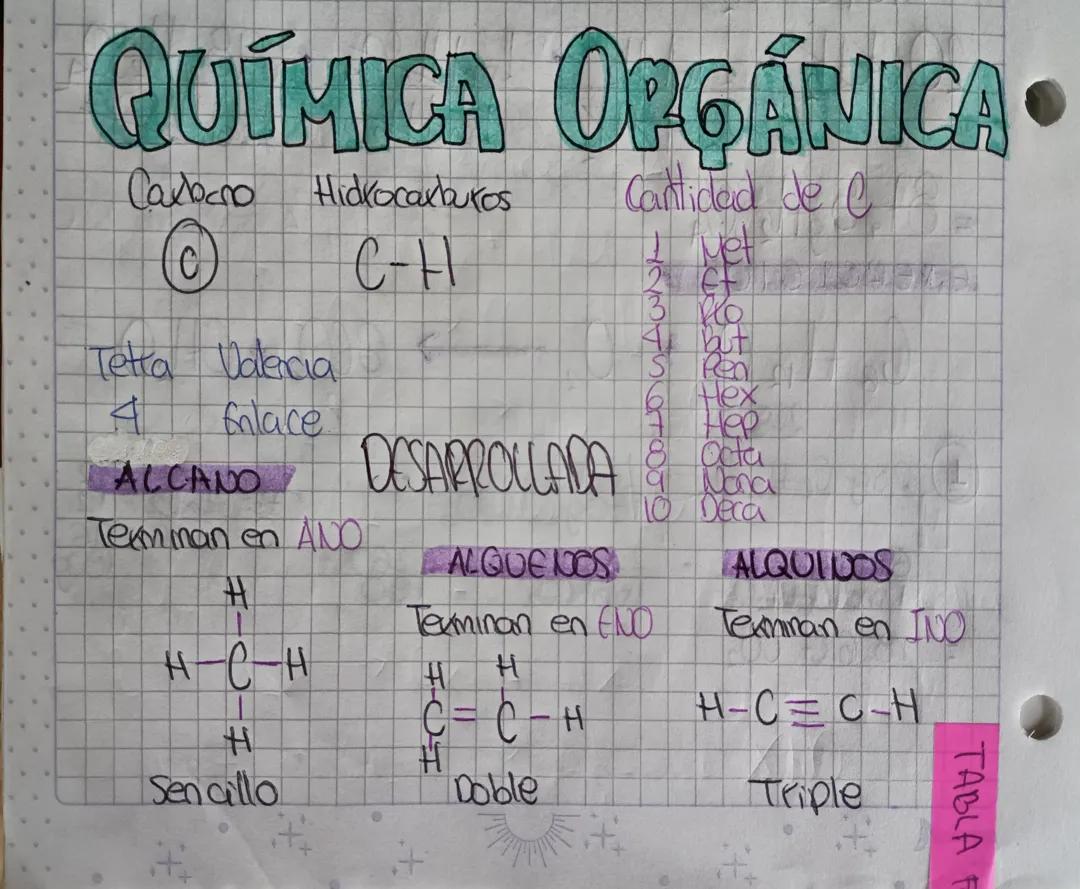 QUÍMICA ORGÁNICA
Carbono Hidrocarburos
C
C-H
Cantidad de C
1 Met
2 Et
3 Pro
4 But
5 Pen
6 Hex
7 Hep
8 Octa
9 Nona
10 Deca
Tetra Valencia
4 Enlace
DESARROLLADA
ALCANO
Terminan en ANO
H
H-C-H
H
Sencillo
ALQUENOS
Terminan en ENO
H H
C=C-H
H
Doble
ALQUINOS
Terminan en INO
H-C≡C-H
Triple
TABLA